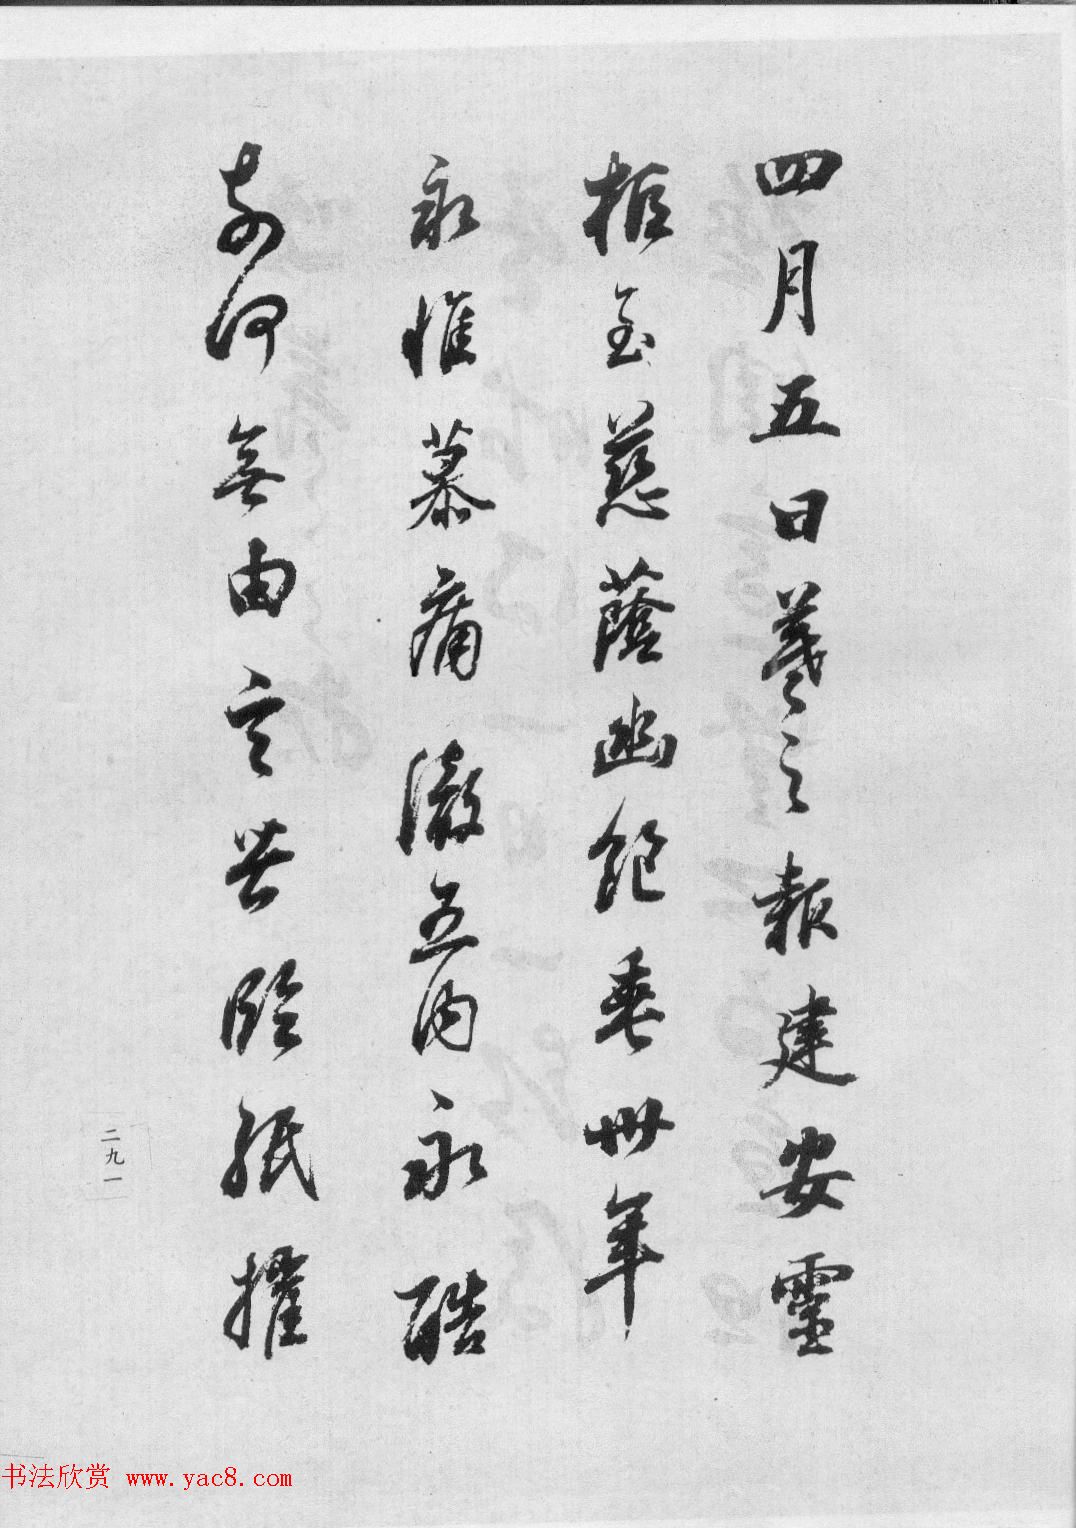 四月五日羲之報建安靈
柩至慈蔭幽絕垂卅年
永惟慕痛徹五內永酷
奈何無由言告臨紙摧
二九一
书法欣赏 www.yac8.com